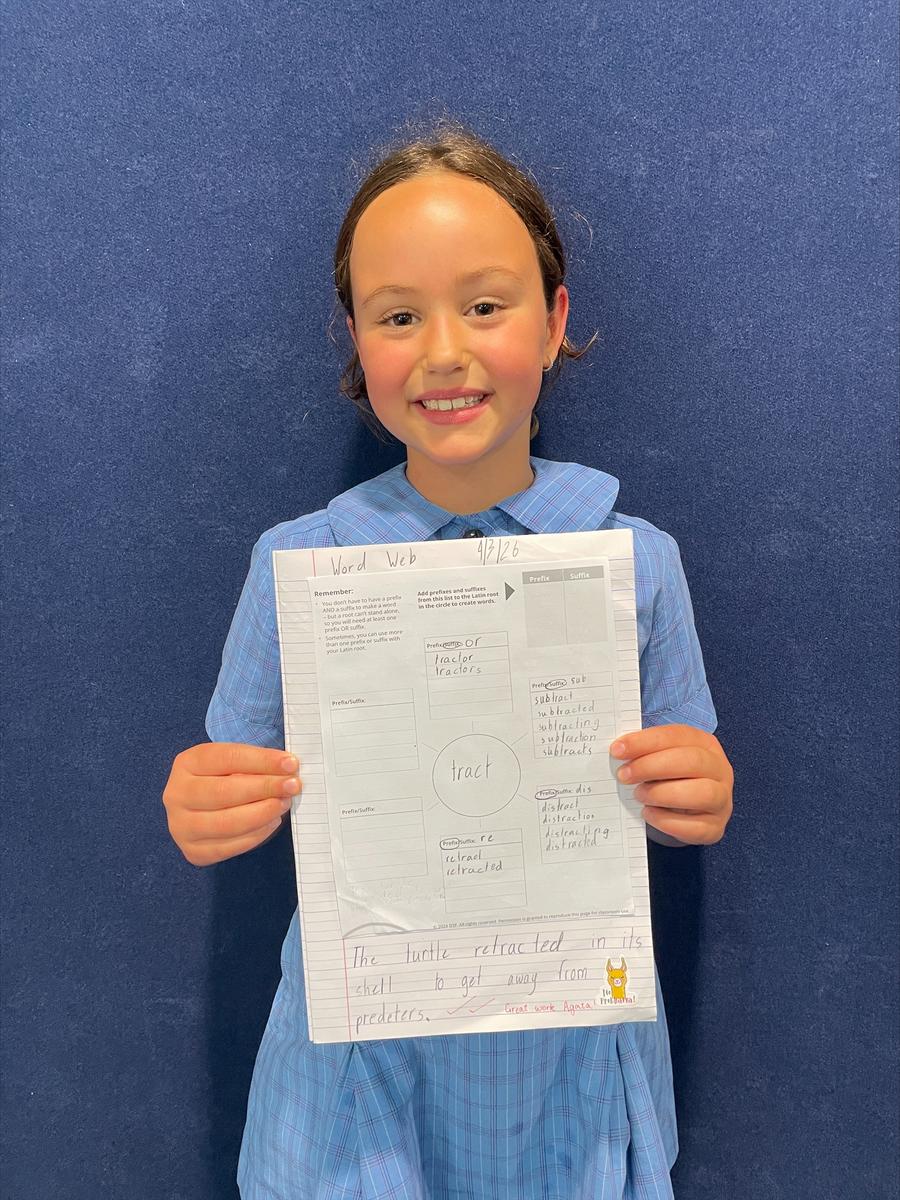 Word Web 4/3/26
Remember:
• You don't have to have a prefix
AND a suffix to make a word
– but a root can't stand alone,
so you will need at least one
prefix OR suffix.
• Sometimes, you can use more
than one prefix or suffix with
your Latin root.
Add prefixes and suffixes
from this list to the Latin root
in the circle to create words.
Prefix Suffix
Prefix/Suffix: or
tractor
tractors
Prefix/Suffix: sub
subtract
subtracted
subtracting
subtraction
subtracts
Prefix/Suffix:
tract
Prefix/Suffix: dis
distract
distraction
distracting
distracted
Prefix/Suffix:
Prefix/Suffix: re
retract
retracted
© 2024 DSF. All rights reserved. Permission is granted to reproduce this page for classroom use.
The turtle retracted in its
shell to get away from
predeters.
Great work Agata!
No
Probllama!